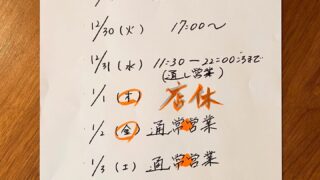 12/30（火） 17:00〜
12/31（水） 11:30 ー 22:00ごろまで
（通し営業）
1/1（木） 店休
1/2（金） 通常営業
1/3（土） 通常営業